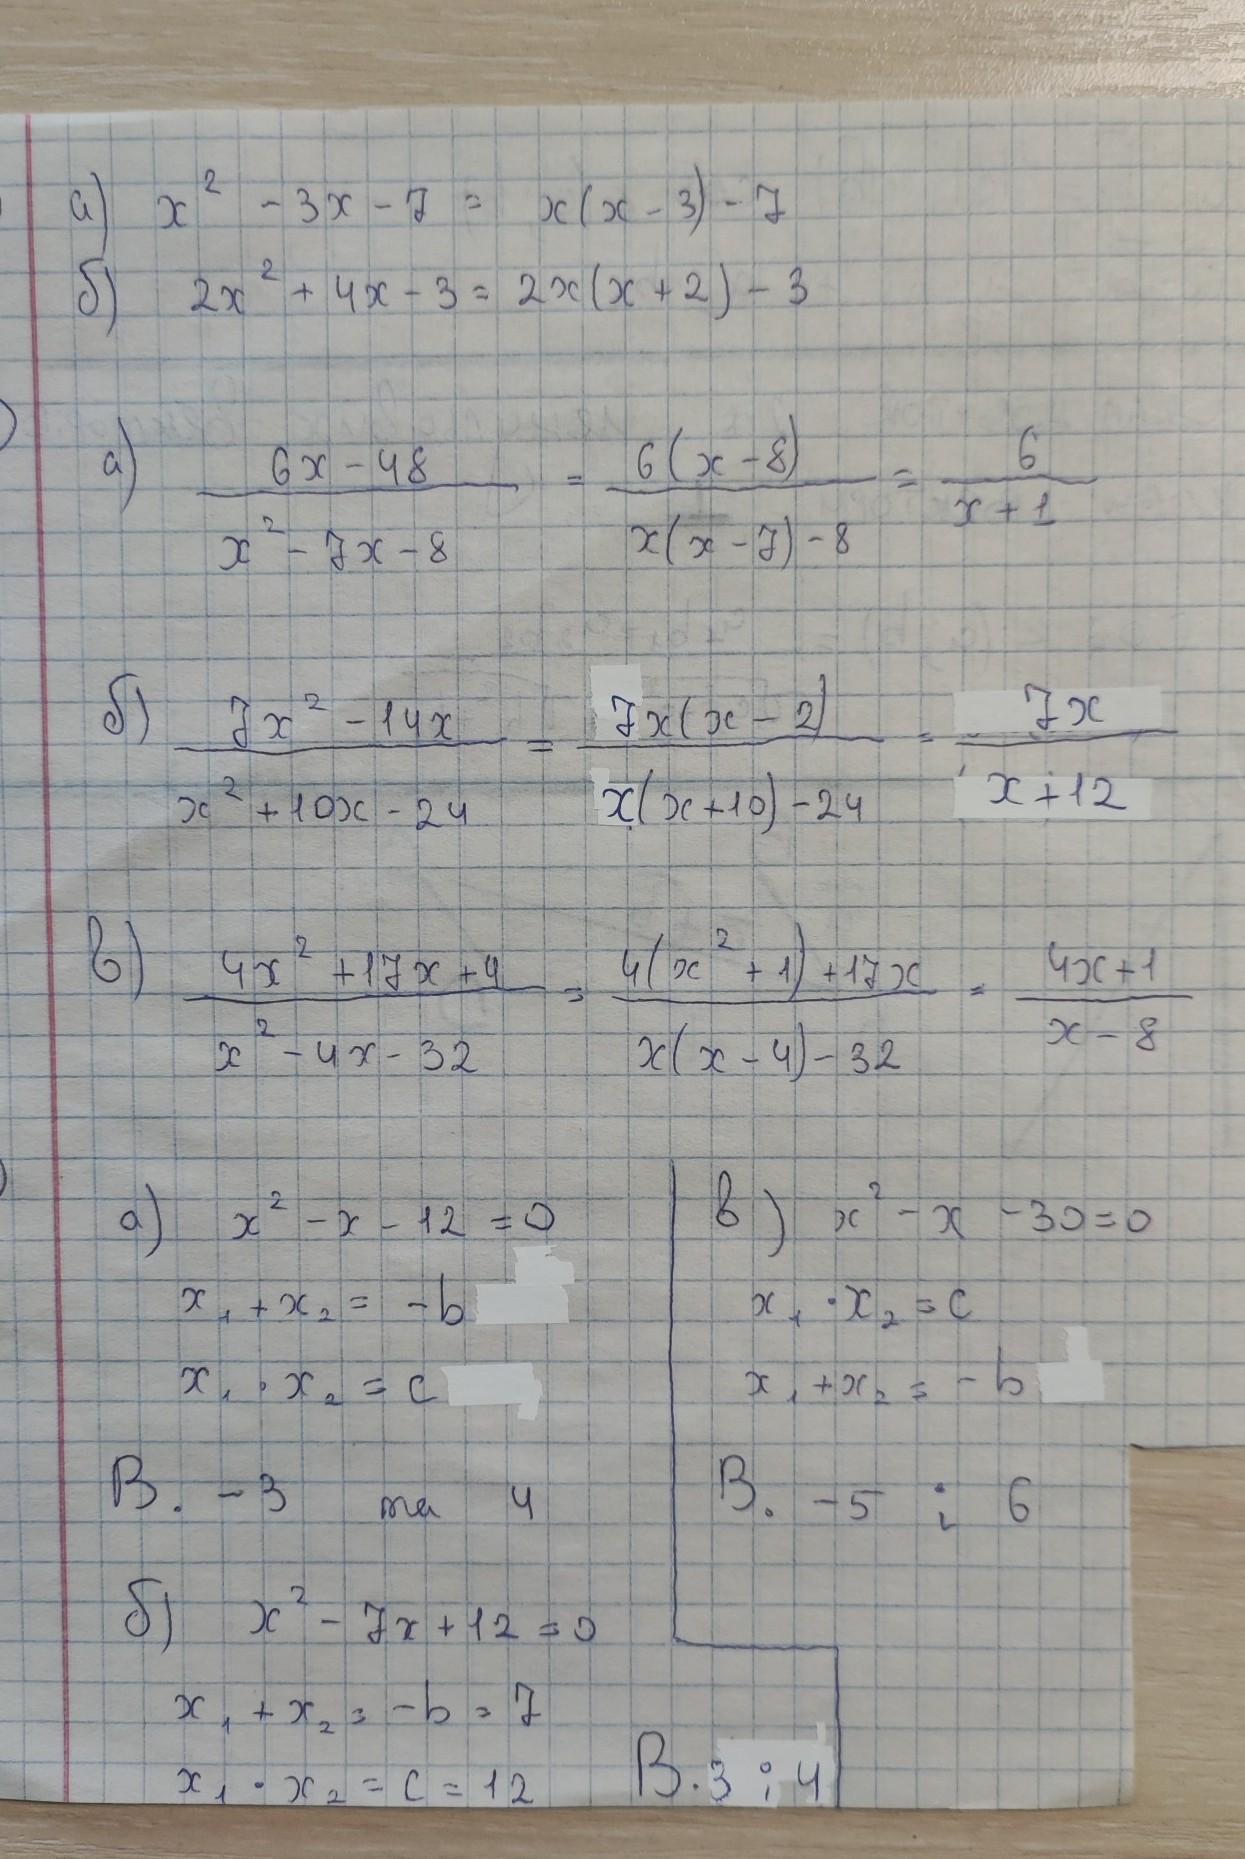 а) x² - 3x - 7 = x(x - 3) - 7
б) 2x² + 4x - 3 = 2x(x + 2) - 3
а) (6x - 48)/(x² - 7x - 8) = (6(x - 8))/(x(x - 7) - 8) = 6/(x + 1)
б) (7x² - 14x)/(x² + 10x - 24) = (7x(x - 2))/(x(x + 10) - 24) = 7x/(x + 12)
в) (4x² + 17x + 4)/(x² - 4x - 32) = (4(x² + 1) + 17x)/(x(x - 4) - 32) = (4x + 1)/(x - 8)
а) x² - x - 12 = 0
x₁ + x₂ = -b
x₁ · x₂ = c
В. -3 та 4
б) x² - 7x + 12 = 0
x₁ + x₂ = -b = 7
x₁ · x₂ = c = 12
В. 3 ; 4
в) x² - x - 30 = 0
x₁ · x₂ = c
x₁ + x₂ = -b
В. -5 ; 6